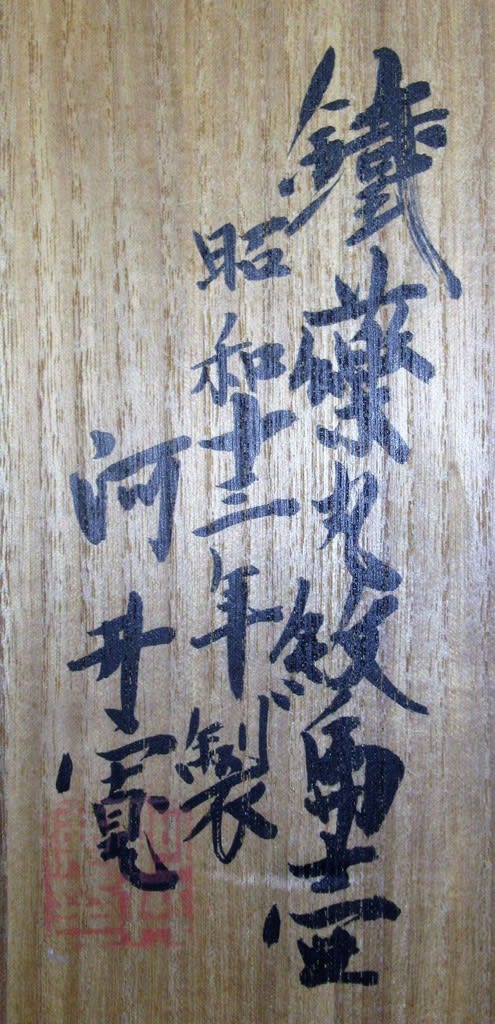 鐵藥丸紋扁壺
昭和十三年製
河井寛